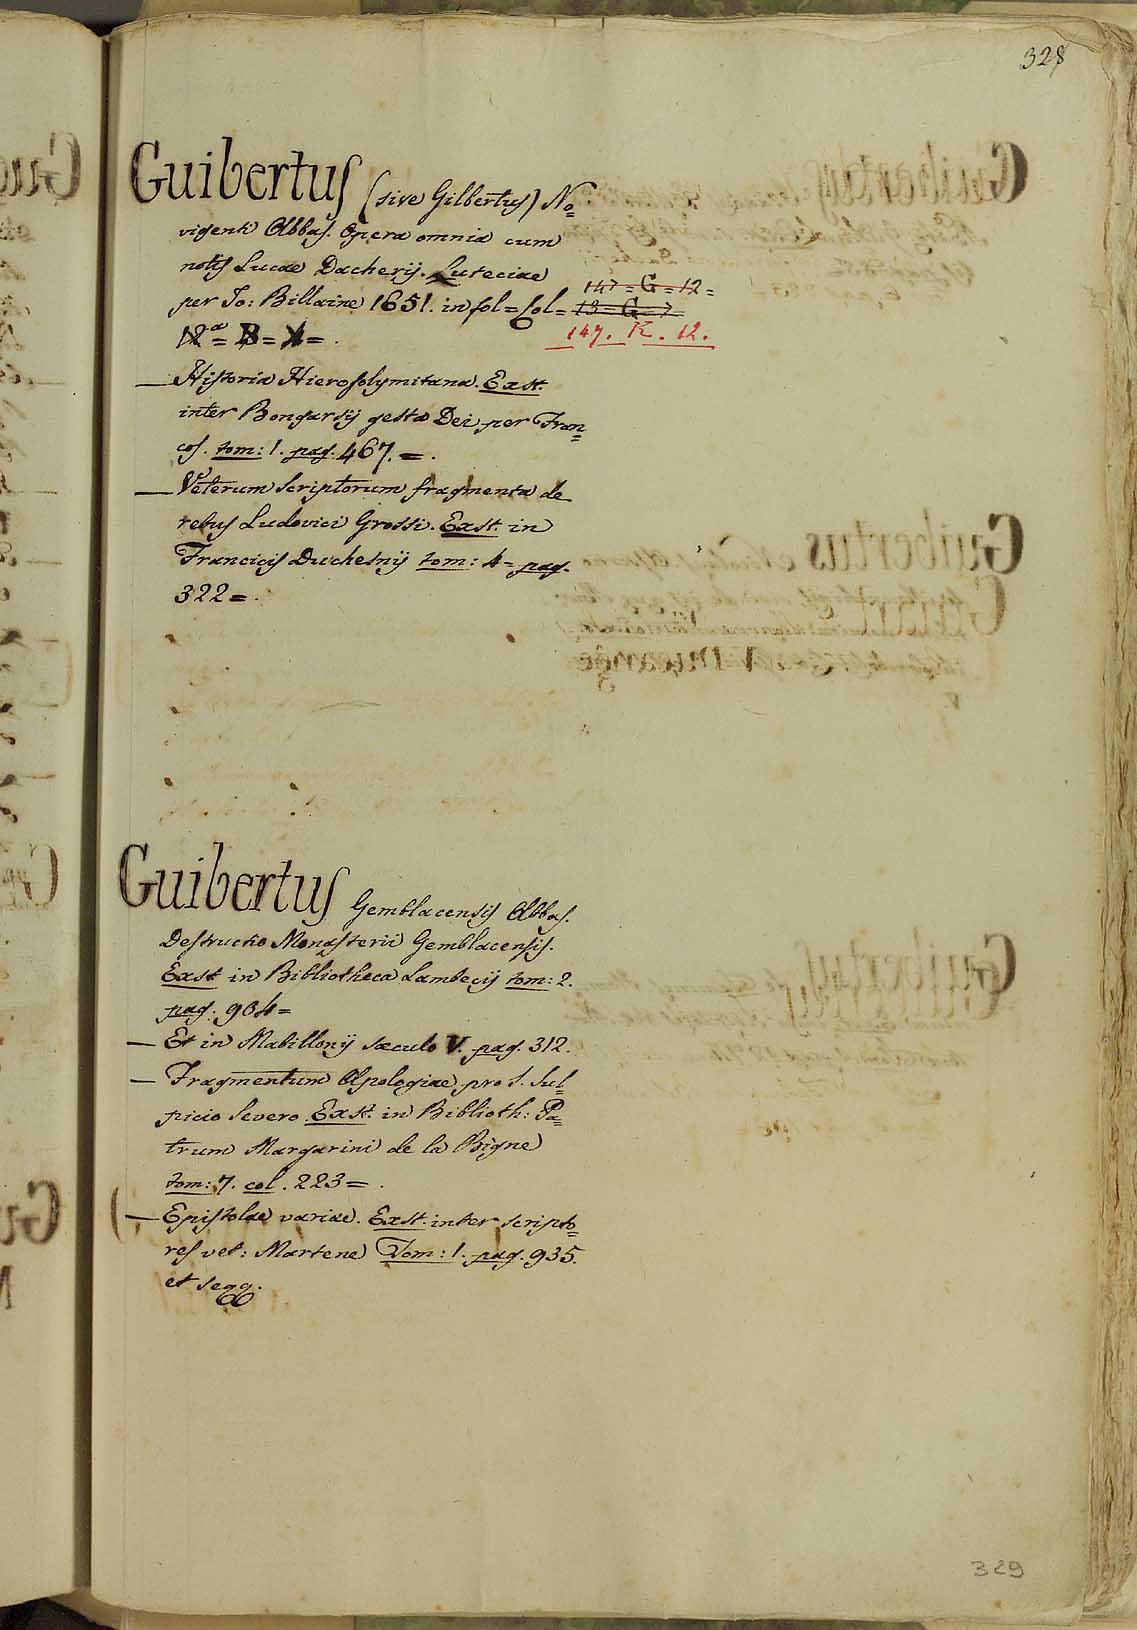 328
Guibertus (sive Gilbertus) No=
vigenti Abbas. Opera omnia cum
notis Lucae Dacherij. Luteciae
per Jo: Billaine 1651. in fol = Col =
147 = G = 12 =
13 = G = 7
147. K. 12.
Historia Hierosolymitana. Exst.
inter Bongarsij gesta Dei per Fran=
cos. tom: 1. pag. 467. = .
Veterum Scriptorum fragmenta de
rebus Ludovici Grossi. Exst. in
Francicis Duchesnij tom: 4 = pag.
322 = .
Guibertus Gemblacensis Abbas.
Destructio Monasterii Gemblacensis.
Exst in Bibliotheca Lambecij tom: 2.
pag: 904 =
— Et in Mabillonij sæculo V. pag. 312.
— Fragmentum Apologiae pro S. Sul=
picio Severo. Exst. in Biblioth: Pa=
trum Margarini de la Bigne
tom: 7. col. 223 = .
— Epistolae variae. Exst. inter scripto=
res vet: Martene Tom: 1. pag. 935.
et seqq.
329